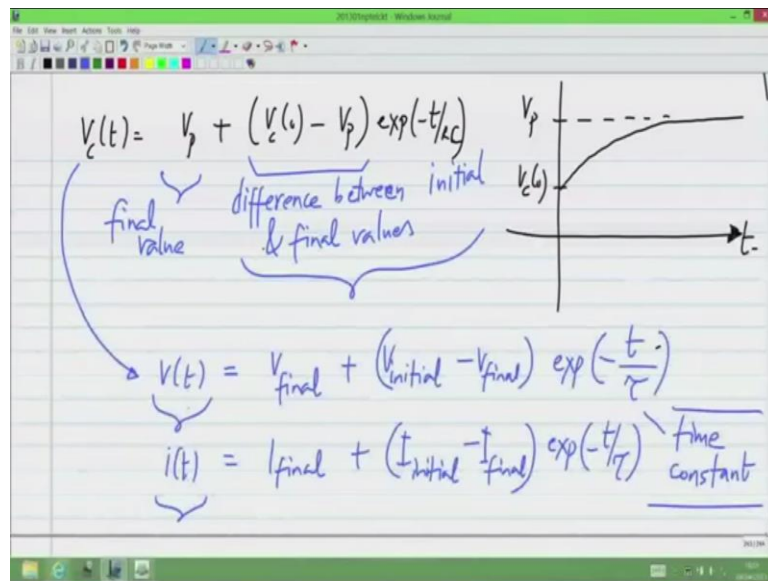 201301nptel.ckt - Windows Journal
File Edit View Insert Actions Tools Help
Page Width
V_c(t) = V_p + (V_c(0) - V_p) exp(-t/RC)
final value
difference between initial & final values
V_p
V_c(0)
t
v(t) = V_final + (V_initial - V_final) exp(-t/τ)
i(t) = I_final + (I_initial - I_final) exp(-t/τ)
time constant